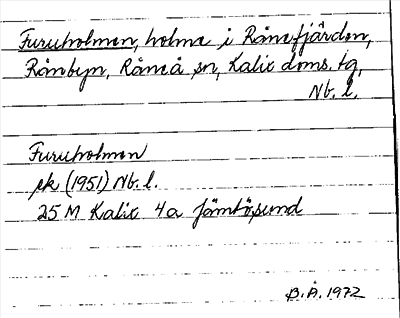 Furuholmen, holme i Rånefjärden,
Rånbyn, Råneå sn, Kalix doms. tg,
Nb. l.
Furuholmen
ek (1951) Nb. l.
25 M Kalix 4a Jämtösund
B.Å. 1972